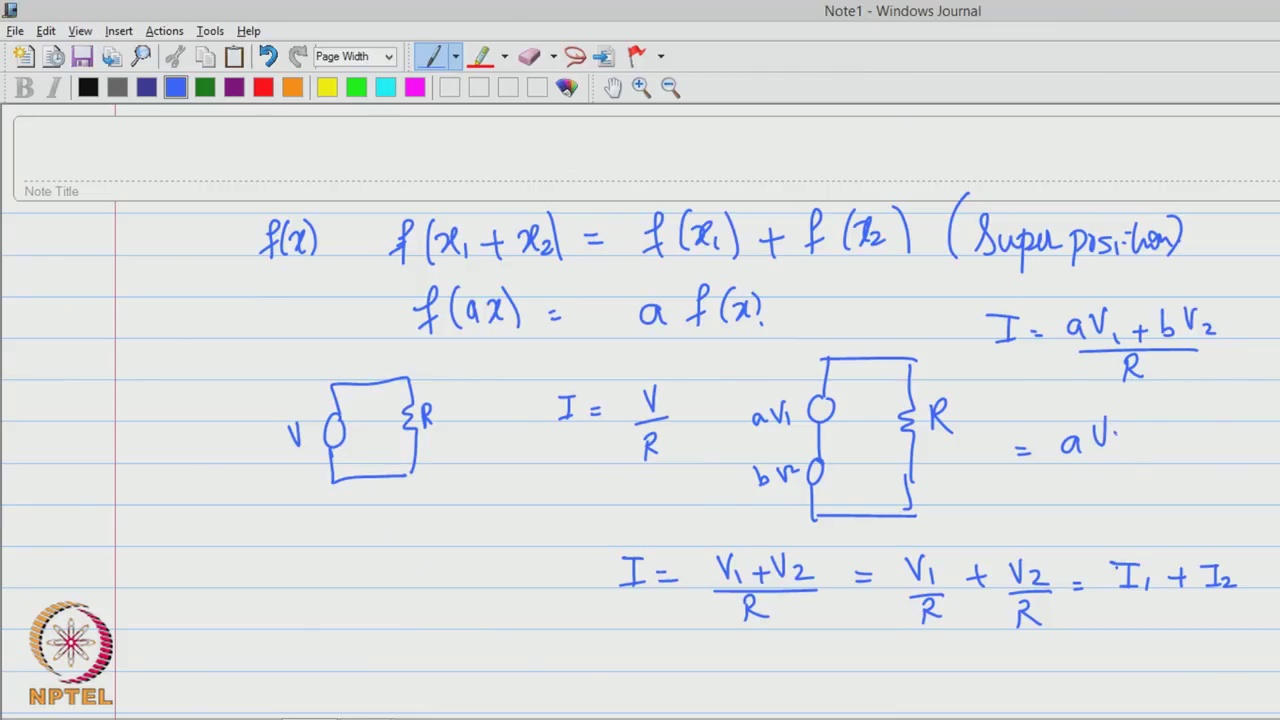 Note1 - Windows Journal
File Edit View Insert Actions Tools Help
Page Width
B I
Note Title
f(x) f(x1 + x2) = f(x1) + f(x2) (Superposition)
f(ax) = a f(x)
I = aV1 + bV2 / R
V R I = V / R aV1 bV2 R
= aV
I = V1 + V2 / R = V1 / R + V2 / R = I1 + I2
NPTEL